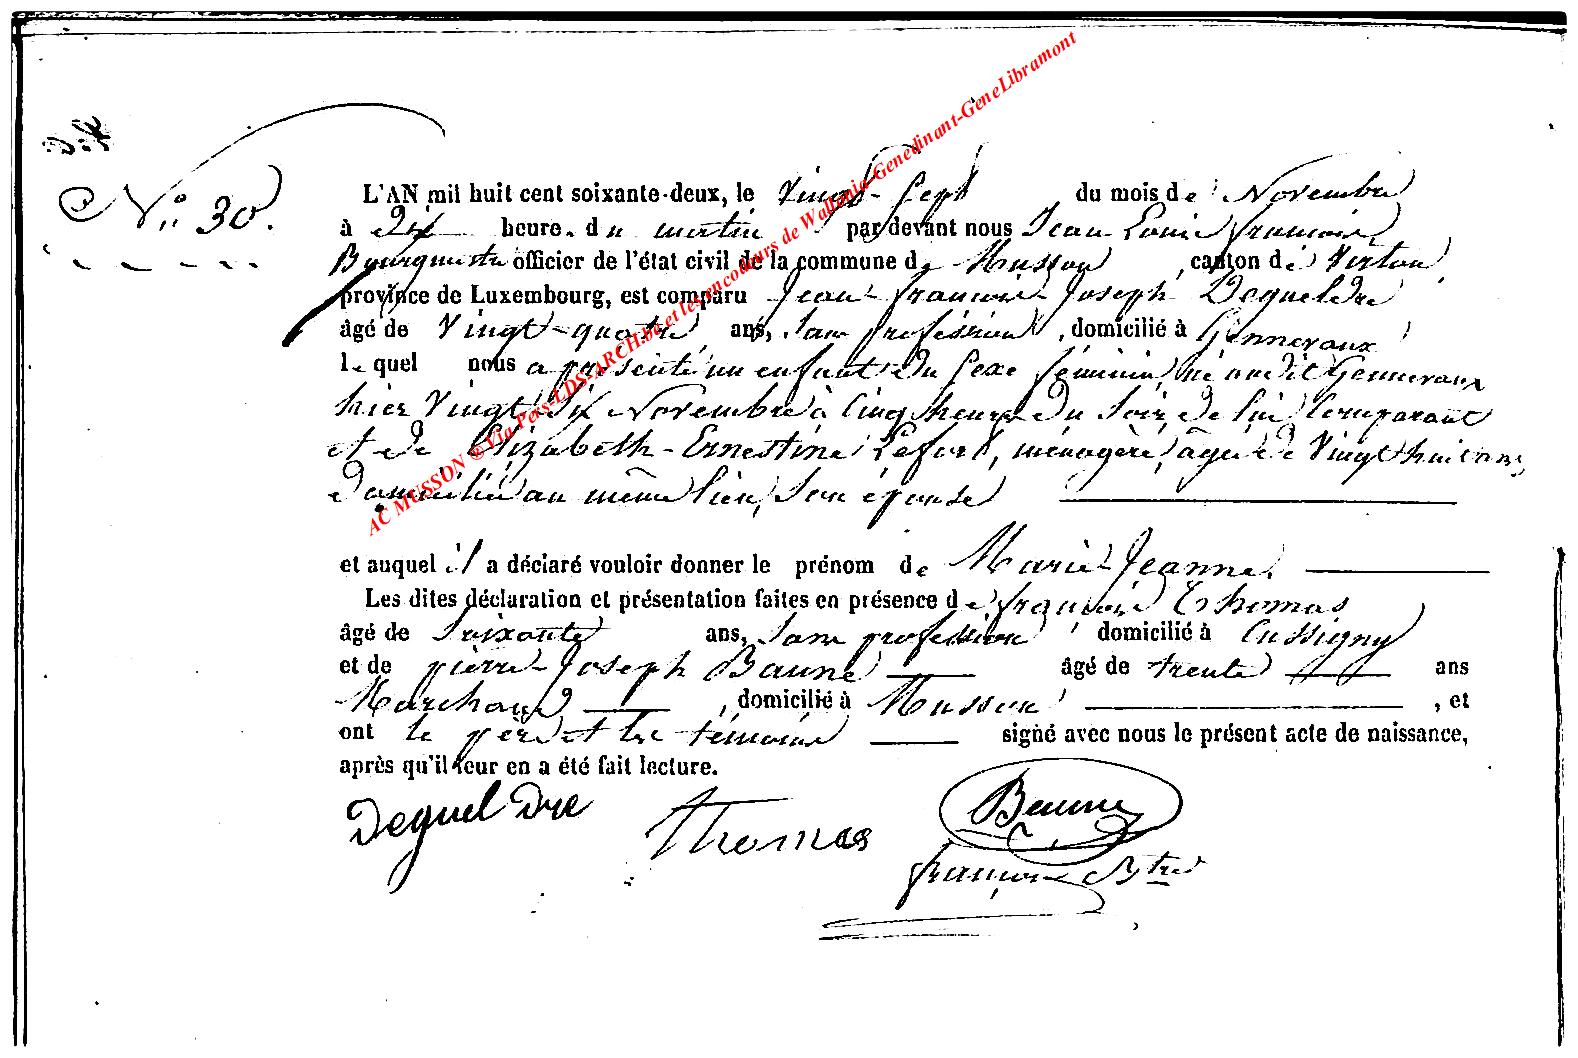 N° 30.
L'AN mil huit cent soixante-deux, le Vingt-Sept du mois de Novembre
à dix heure. du matin par devant nous Jean Louis françois,
Bourgmestre officier de l'état civil de la commune de Musson, canton de Virton,
province de Luxembourg, est comparu Jean-françois-Joseph Dequeldre
âgé de Vingt-quatre ans, Sans profession, domicilié à Gennevaux,
lequel nous a présenté un enfant du Sexe féminin, né audit Gennevaux
hier Vingt Six Novembre à Cinq heures du Soir, de lui Comparant
et de Elizabeth-Ernestine Lefort, ménagère, âgée de Vingt huit ans,
domiciliée au même lieu, Son épouse
et auquel il a déclaré vouloir donner le prénom de Marie-Jeanne.
Les dites déclaration et présentation faites en présence de françois Thomas
âgé de Soixante ans, Sans profession, domicilié à Cussigny
et de pierre-Joseph Baune âgé de trente ans
Marchand, domicilié à Musson, et
ont le père et les témoins signé avec nous le présent acte de naissance,
après qu'il leur en a été fait lecture.
Dequeldre Thomas Baune
françois Bgtre
AC MUSSON ® Via Pers-LDS-ARCH.be et les encodeurs de Wallonia-Genedinant-GeneLibramont